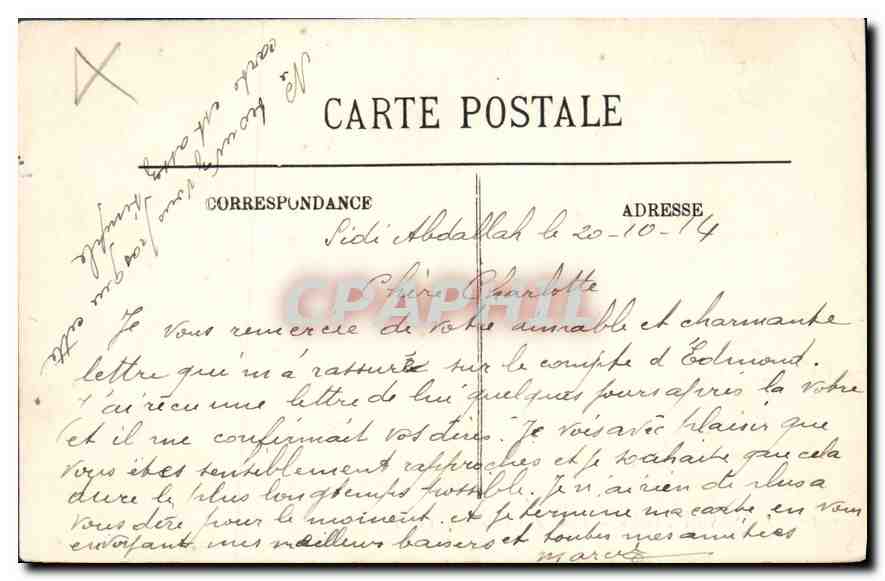 Ne trouvez vous pas que cette
carte est assez simple
CARTE POSTALE
CORRESPONDANCE
ADRESSE
Sidi Abdallah le 20-10-14
Chère Charlotte
CPAPHIL
Je vous remercie de votre aimable et charmante
lettre qui m'a rassuré sur le compte d'Edmond.
J'ai réçu une lettre de lui quelques jours après la votre
et il me confirmait vos dires. Je vois avèc plaisir que
vous ètes sensiblement rapprochés et je souhaite que cela
dure le plus longtemps possible. Je n'ai rien de plus a
vous dire pour le moment. et je termine ma carte en vous
envoyant mes meilleurs baisers et toutes mes amitiés